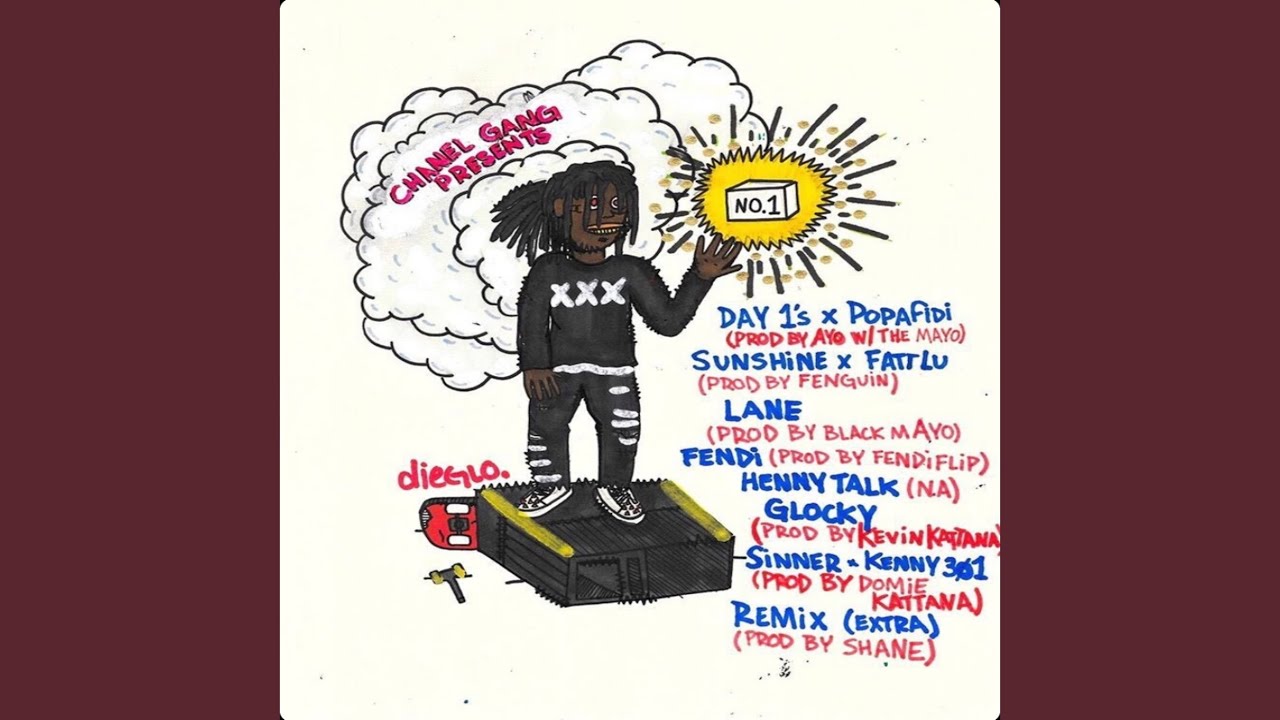 CHANEL GANG
PRESENTS
NO.1
XXX
DAY 1's x POPAFiDi
(PROD BY AYO W/ THE MAYO)
SUNSHiNE x FATTLU
(PROD BY FENGUiN)
LANE
(PROD BY BLACK MAYO)
FENDi (PROD BY FENDiFLiP)
HENNY TALK (N.A)
GLOCKY
(PROD BY KEViN KATTANA)
SiNNER x KENNY 3Ø1
(PROD BY DOMiE
KATTANA)
REMiX (EXTRA)
(PROD BY SHANE)
dieGLO.